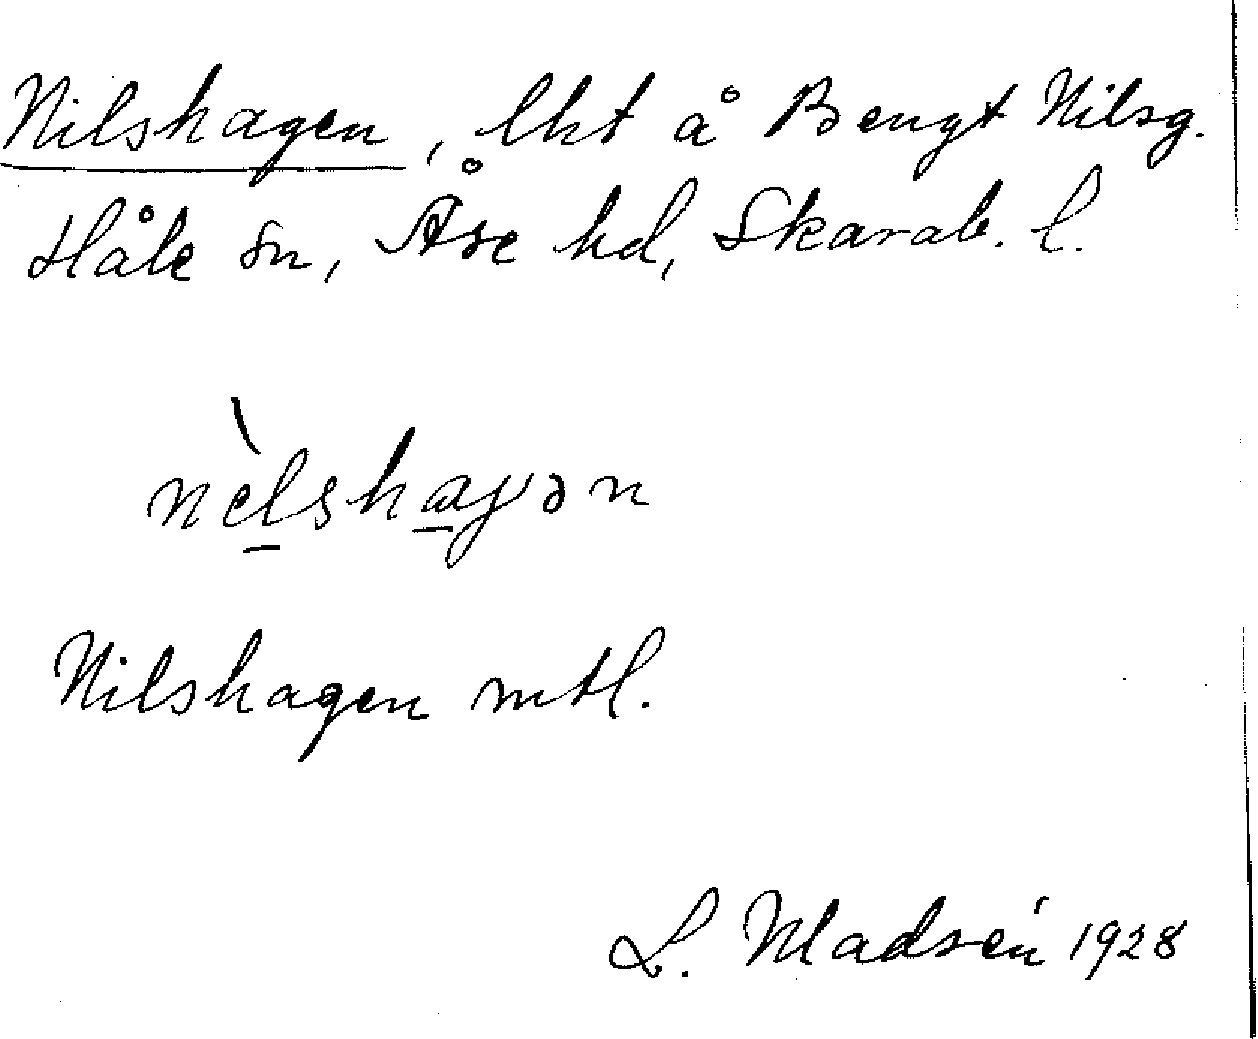 Nilshagen, lht å Bengt Nilsg.
Håle sn, Åse hd, Skarab. l.
nèlshaγən
Nilshagen mtl.
L. Madsén 1928